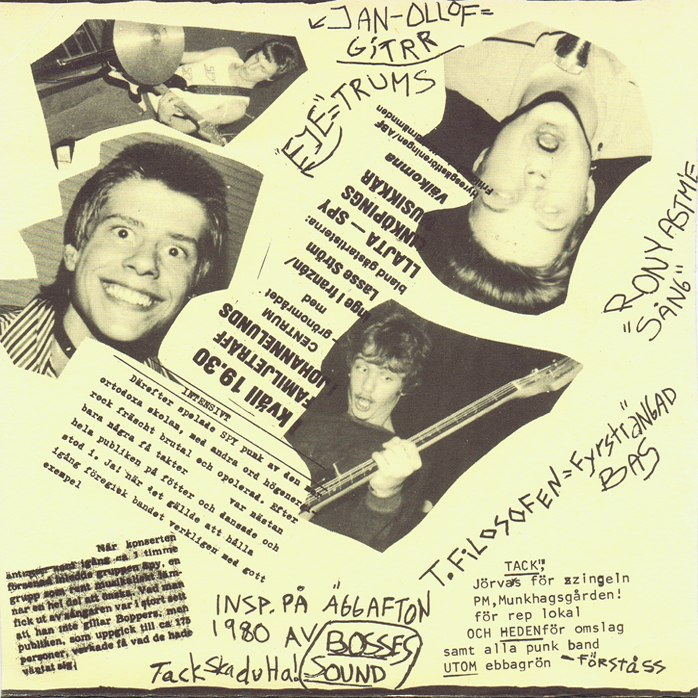 ↙JAN-OLLOF=
GITRR
EJE="TRUMS
SPY
RONY ASTMIE
"SÅNG"
Hyresgästföreningen/ABF
Välkomna
USIKKÅR
NKÖPINGS
LLAJTA — SPY
bland gästartisterna:
Lasse Ström
nge I franzén/
med
grönområdet
CENTRUM
JOHANNELUNDS
FAMILJETRÄFF
kväll 19.30
INTENSIVT
Därefter spelade SPY punk av den
ortodoxa skolan, med andra ord högener
rock fräscht brutal och opolerad. Efter
bara några få takter var nästan
hela publiken på fötter och dansade och
stod i. Ja! när det gällde att hålla
igång föregick bandet verkligen med gott
exempel
T. FILOSOFEN=Fyrsträngad
BAS
När konserten
äntligen rent igång ca 1 timme
försenad inledde gruppen Spy, en
grupp som rent musikaliskt läm-
nar en hel del att önska. Vad man
fick ut av sångaren var i stort sett
att han inte gillar Boppers, men
publiken, som uppgick till ca 175
personer, verkade få vad de hade
väntat sig.
INSP. PÅ ÄGGAFTON
1980 AV BOSSES
SOUND
Tack ska du Ha!
TACK!;
Jörvas för szingeln
PM,Munkhagsgården!
för rep lokal
OCH HEDENför omslag
samt alla punk band
UTOM ebbagrön —FÖRSTÅSS